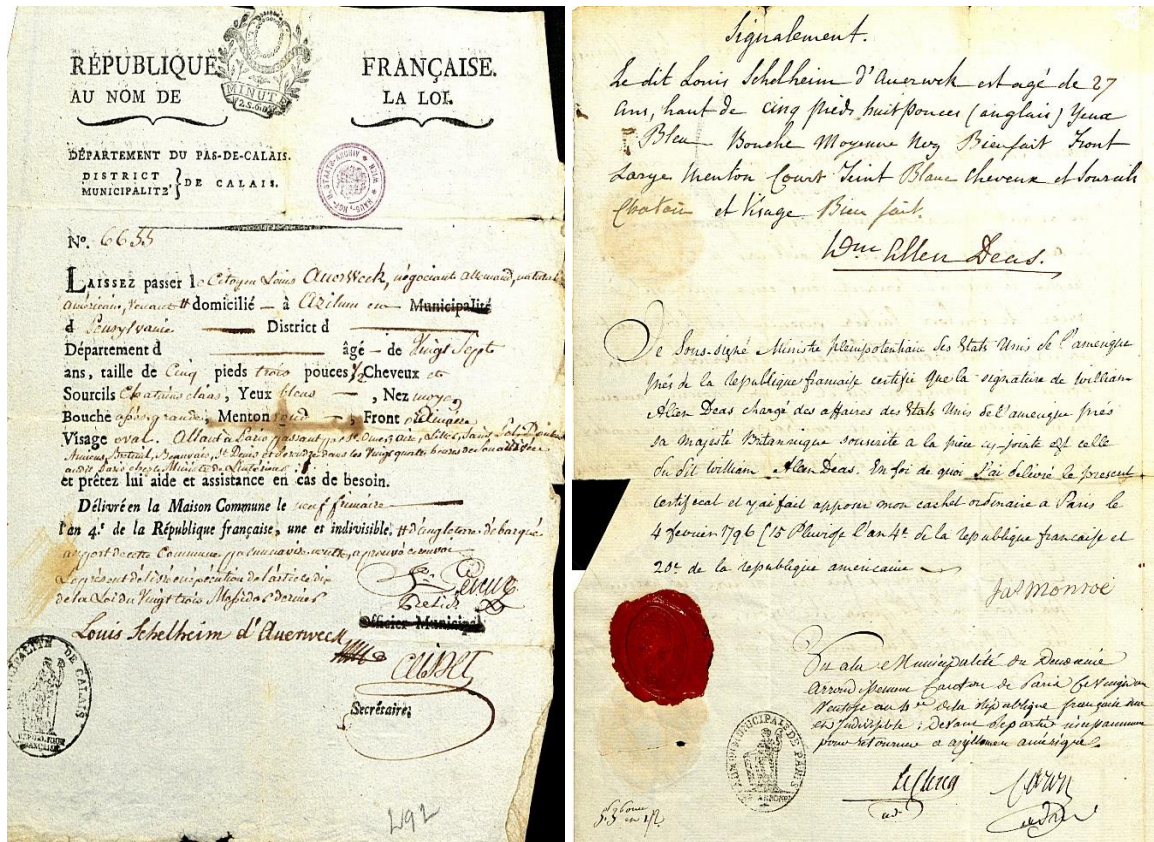 RÉPUBLIQUE FRANÇAISE.
AU NOM DE LA LOI.
MINUTE
DÉPARTEMENT DU PAS-DE-CALAIS.
DISTRICT
MUNICIPALITÉ } DE CALAIS.
Nº. 6633
LAISSEZ passer le Citoyen Louis Auerweck, négociante allemand,
américain, venant # domicilié – à Azilum en Municipalité
d Pensylvanie District d
Département d âgé – de Vingt Sept
ans, taille de Cinq pieds trois pouces ½ Cheveux et
Sourcils Chatains clairs, Yeux bleus – , Nez moyen
Bouche assez grande, Menton rond – , Front ordinaire
Visage oval. Allant à Paris passant par St. Omer, Aire, Lille,
Amiens, Breteuil, Beauvais, St Denis et se rendre dans les Vingt quatre heures de son arrivée
audit Paris chez le Ministre de l'intérieur
et prêtez lui aide et assistance en cas de besoin.
Délivré en la Maison Commune le neuf frimaire
l'an 4.e de la République française, une et indivisible. # d'angleterre débarqué
au port de cette Commune
Le présent délivré en exécution de l'article dix
de la Loi du Vingt trois Messidor dernier
Officier Municipal
Louis Schelheim d'Auerweck
Secrétaire,
MUNICIPALITÉ DE CALAIS
492
Signalement.
Le dit Louis Schelheim d'Auerwek est agé de 27
ans, haut de cinq pieds huit pouces (anglais) Yeux
Bleu Bouche Moyenne Nez Bien fait Front
Large Menton Court Teint Blanc Cheveux et Sourcils
Chatain et Visage Bien fait.
Wm Allen Deas.
Je Sous-signé Ministre plenipotentiaire des Etats Unis de l'amerique
près de la republique francaise certifie que la signature de william
Allen Deas chargé des affaires des Etats Unis de l'amerique près
sa majesté Britannique souscrite a la pièce cy-jointe est celle
du dit william Allen Deas. En foi de quoi J'ai delivré le present
certificat et y ai fait apposer mon cachet ordinaire a Paris le
4 fevrier 1796 (15 Pluviose l'an 4e de la republique francaise et
20e de la republique americaine
Jas Monroe
Vu a la Municipalité du Deuxieme
Arrondissement Canton de Paris
Ventose an 4me de la république française une
et Indivisible; devant
pour retourner a en amérique.
LeClercq